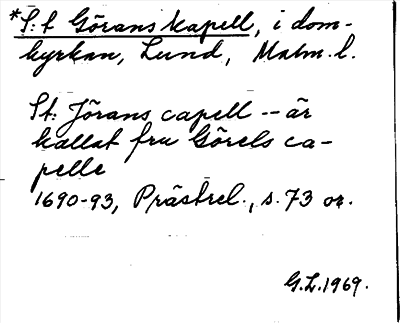 *S:t Görans kapell, i dom-
kyrkan, Lund, Malm. l.
St: Jörans capell -- är
kallat fru Görels ca-
pelle
1690-93, Prästrel., s. 73 or.
G.L. 1969.